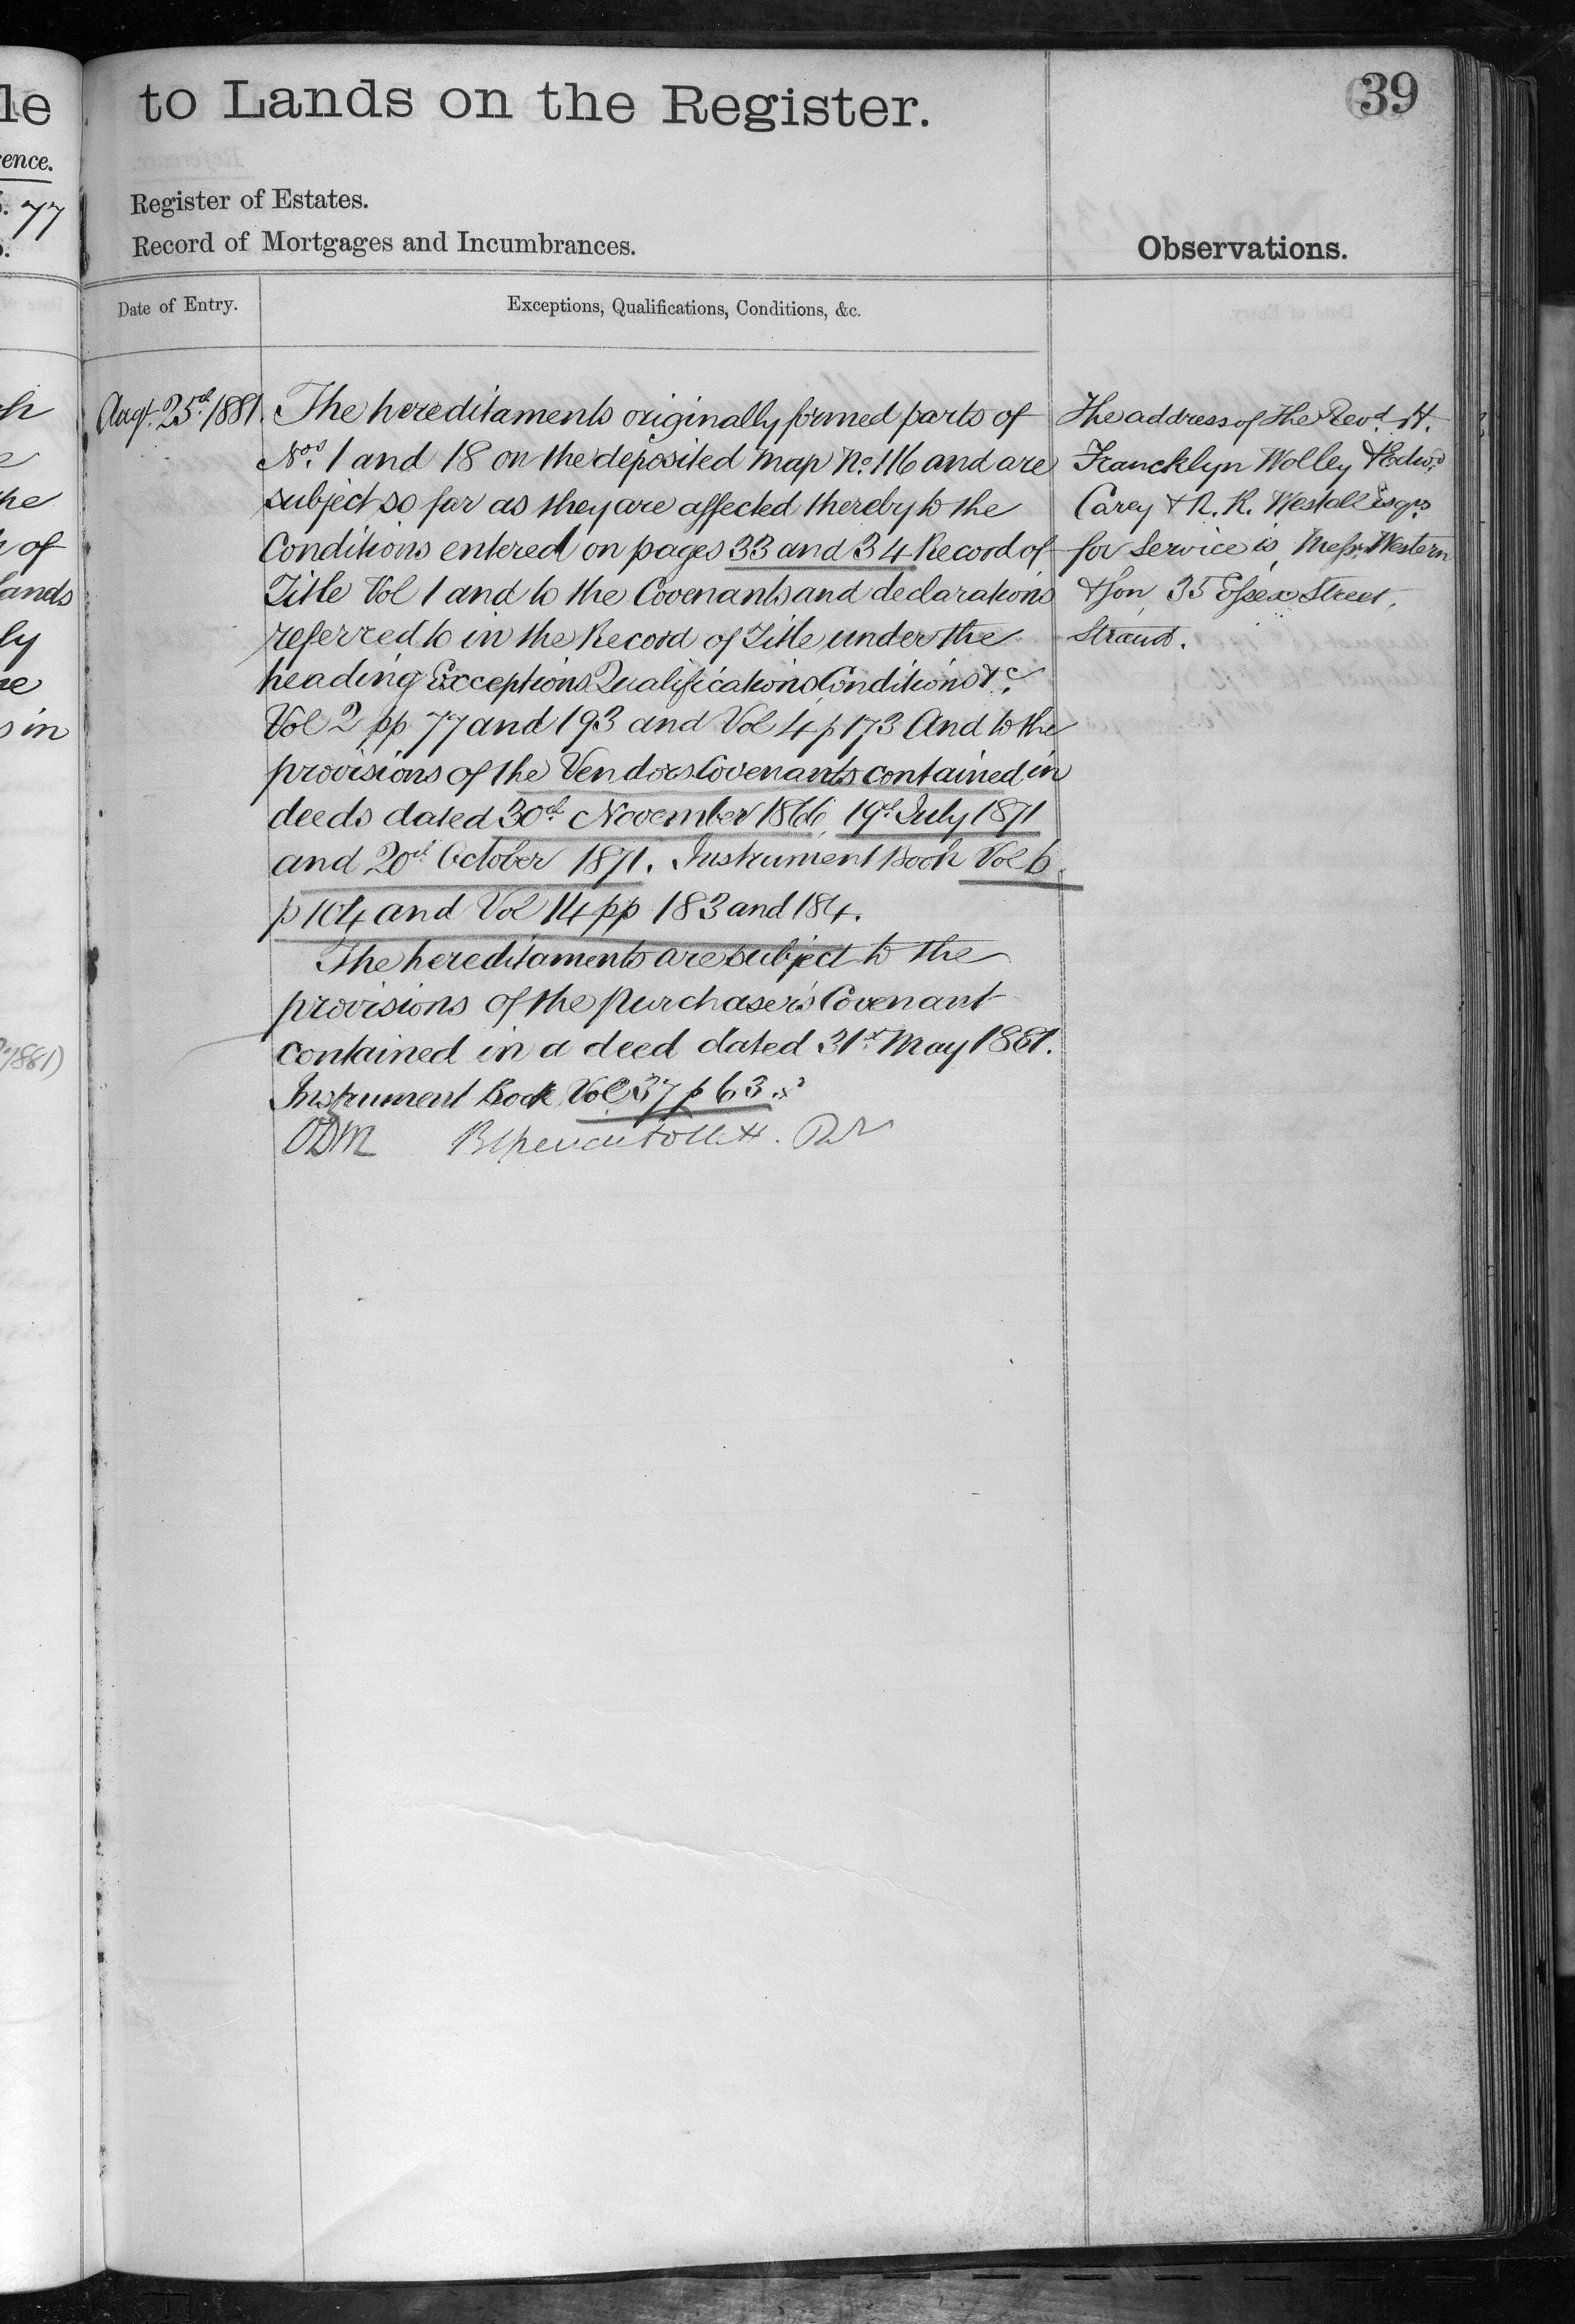 le
to Lands on the Register.
39
ence.
77
Register of Estates.
Record of Mortgages and Incumbrances.
Observations.
Date of Entry.
Exceptions, Qualifications, Conditions, &c.
Augt. 25th 1881.
The hereditaments originally formed parts of
Nos. 1 and 18 on the deposited map No. 116 and are
subject so far as they are affected thereby to the
Conditions entered on pages 33 and 34 Record of
Title Vol 1 and to the Covenants and declarations
referred to in the Record of Title under the
heading Exceptions Qualifications Conditions &c.
Vol 2 pp 77 and 193 and Vol 4 p 173 And to the
provisions of the Vendors Covenants contained in
deeds dated 30th November 1866, 19th July 1871
and 20th October 1871. Instrument Book Vol 6.
p 104 and Vol 14 pp 183 and 184.
The hereditaments are subject to the
provisions of the purchasers Covenant
contained in a deed dated 31st May 1881.
Instrument Book Vol 37 p 63.
ODM
The address of The Revd. H.
Francklyn Wolley & Edwd.
Carey & R. R. Westall Esqrs
for Service is, Messrs. Western
& Son, 35 Essex Street,
Strand.
he
of
lands
ly
in
1881)